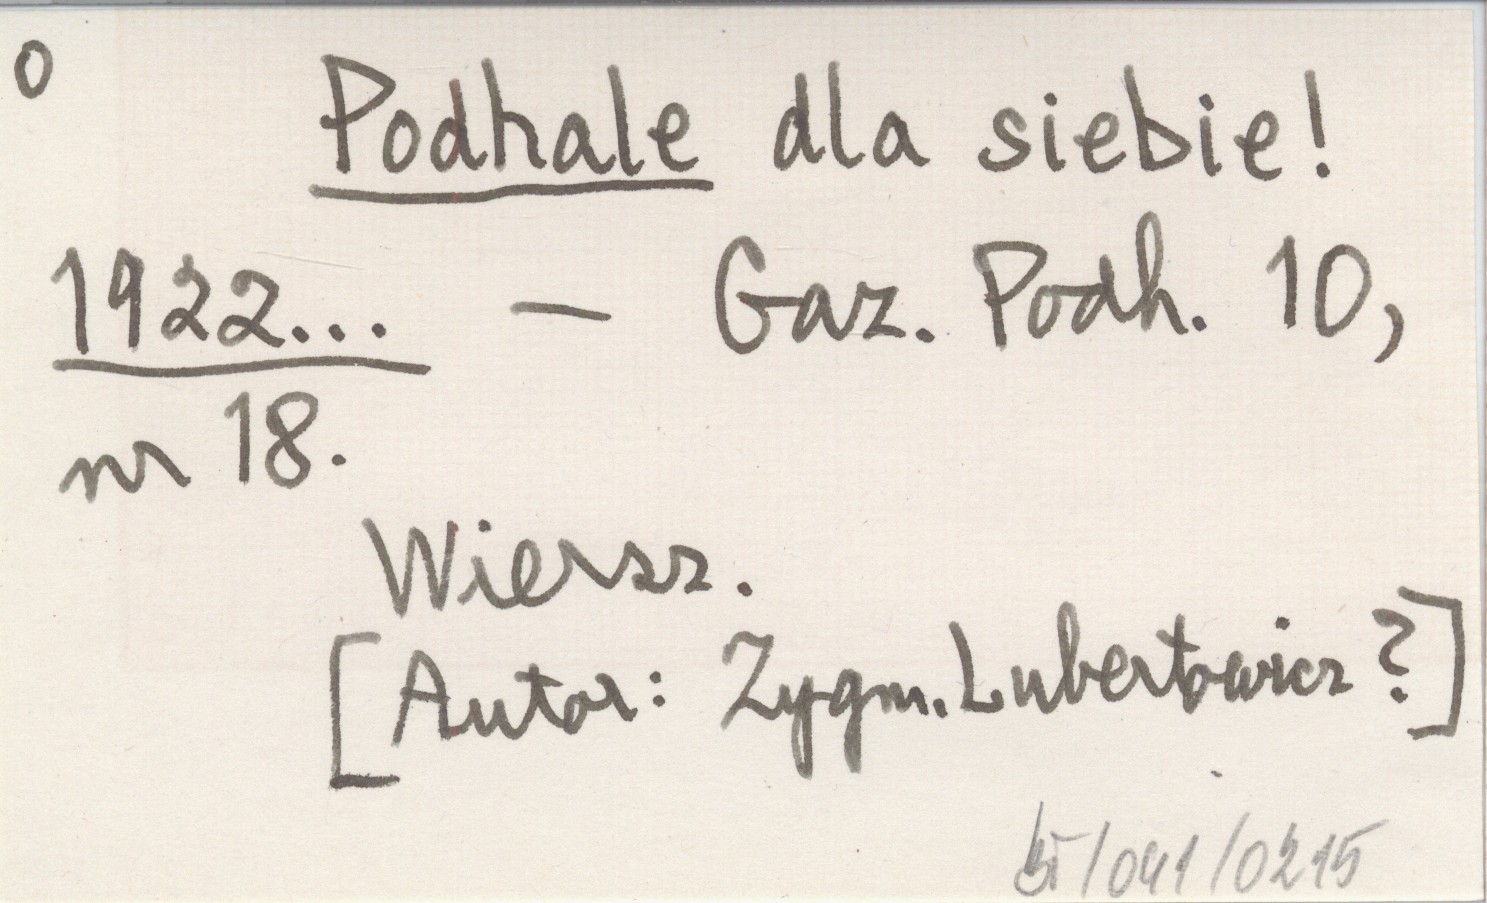 o
Podhale dla siebie!
1922... — Gaz. Podh. 10,
nr 18.
Wiersz.
[Autor: Zygm. Lubertowicz?]
/041/0215